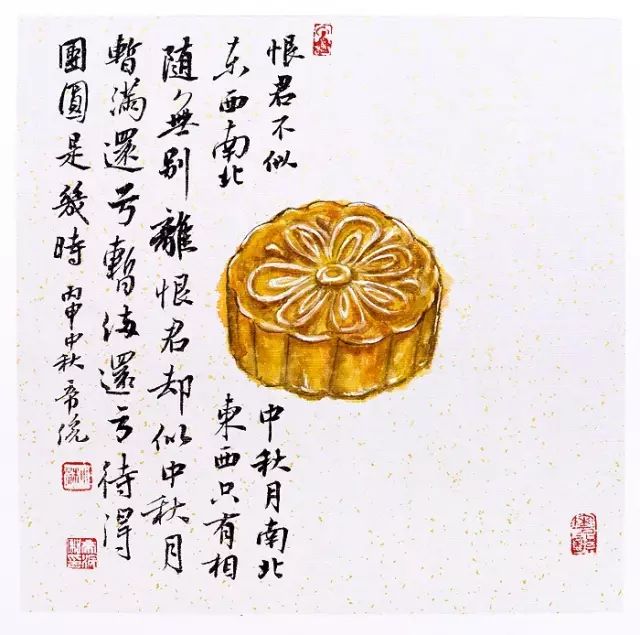 恨君不似中秋月南北
东西南北東西只有相
随無别離恨君却似中秋月
暫滿還亏暫滿還亏待得
團圓是幾時 丙申中秋